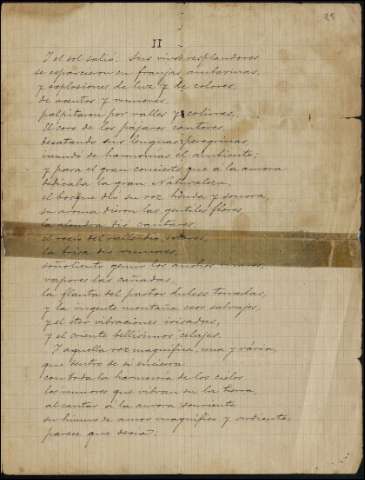 25
II
Y el sol salió. Sus vivos resplandores
se esparcieron en franjas ambarinas,
y explosiones de luz y de colores,
de acentos y rumores
palpitaron por valles y colinas.
El coro de los pájaros cantores
desatando sus lenguas peregrinas
de harmonías el ambiente;
y para el gran concierto que a la aurora
dedicaba la gran Naturaleza,
el bosque dió su voz honda y sonora,
su aroma dieron las gentiles flores,
la alondra dió cantares,
el del valle dió
la brisa dió rumores,
gemir los anchos mares,
vapores las cañadas,
la flauta del pastor dulces tonadas,
y la ingente montaña ecos salvajes,
y el éter vibraciones irisadas,
y el oriente bellísimos celajes.
Y aquella voz magnífica, una y varia,
que dentro de sí encierra
con toda la harmonía de los cielos
los rumores que vibran en la tierra,
al cantar á la aurora sonriente
su himno de amor magnífico y ardiente,
parece que decía: